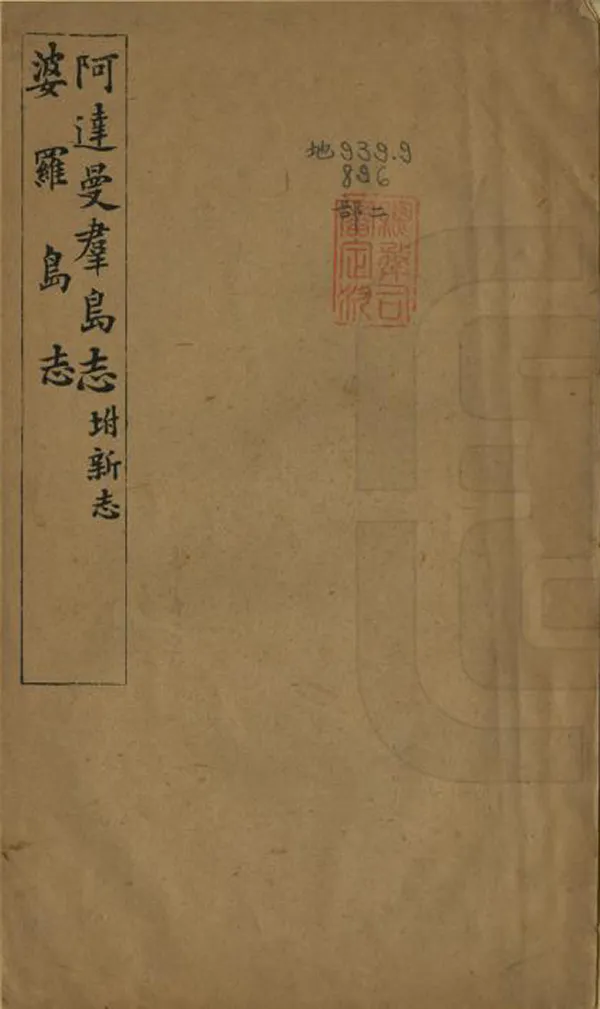 阿達曼羣島志坿新志
婆羅島志
地939.9
896
部二